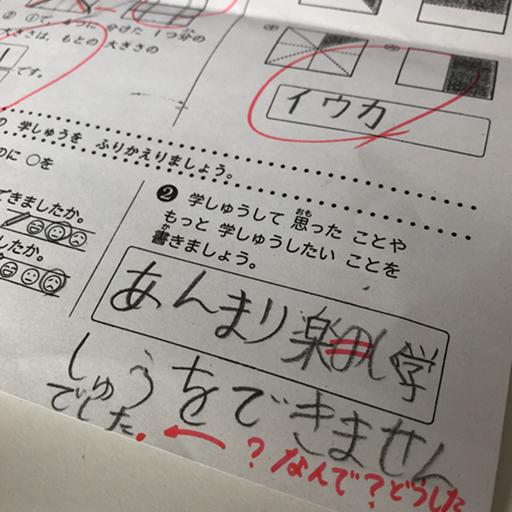 ② ①で 4つに 分けた 1つ分の
大きさは、もとの 大きさの
です。
イウカ
の 学しゅうを ふりかえりましょう。
のに ○を
できましたか。
したか。
❷ 学しゅうして 思った ことや
おも
もっと 学しゅうしたい ことを
書きましょう。
か
あんまり楽の学
しゅうをできません
でした.
← ? なんで?どうした